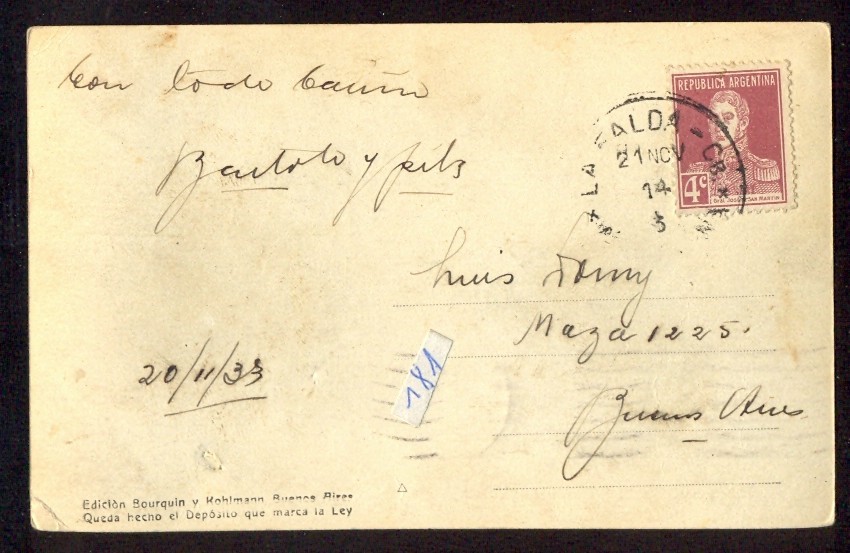 Con todo cariño
Bartolo y
REPUBLICA ARGENTINA
4c
LA FALDA - CBA
21 NOV
14
Luis
Maza 1225.
Buenos Aires
20/11/33
181
Edición Bourquin y Kohlmann Buenos Aires
Queda hecho el Depósito que marca la Ley